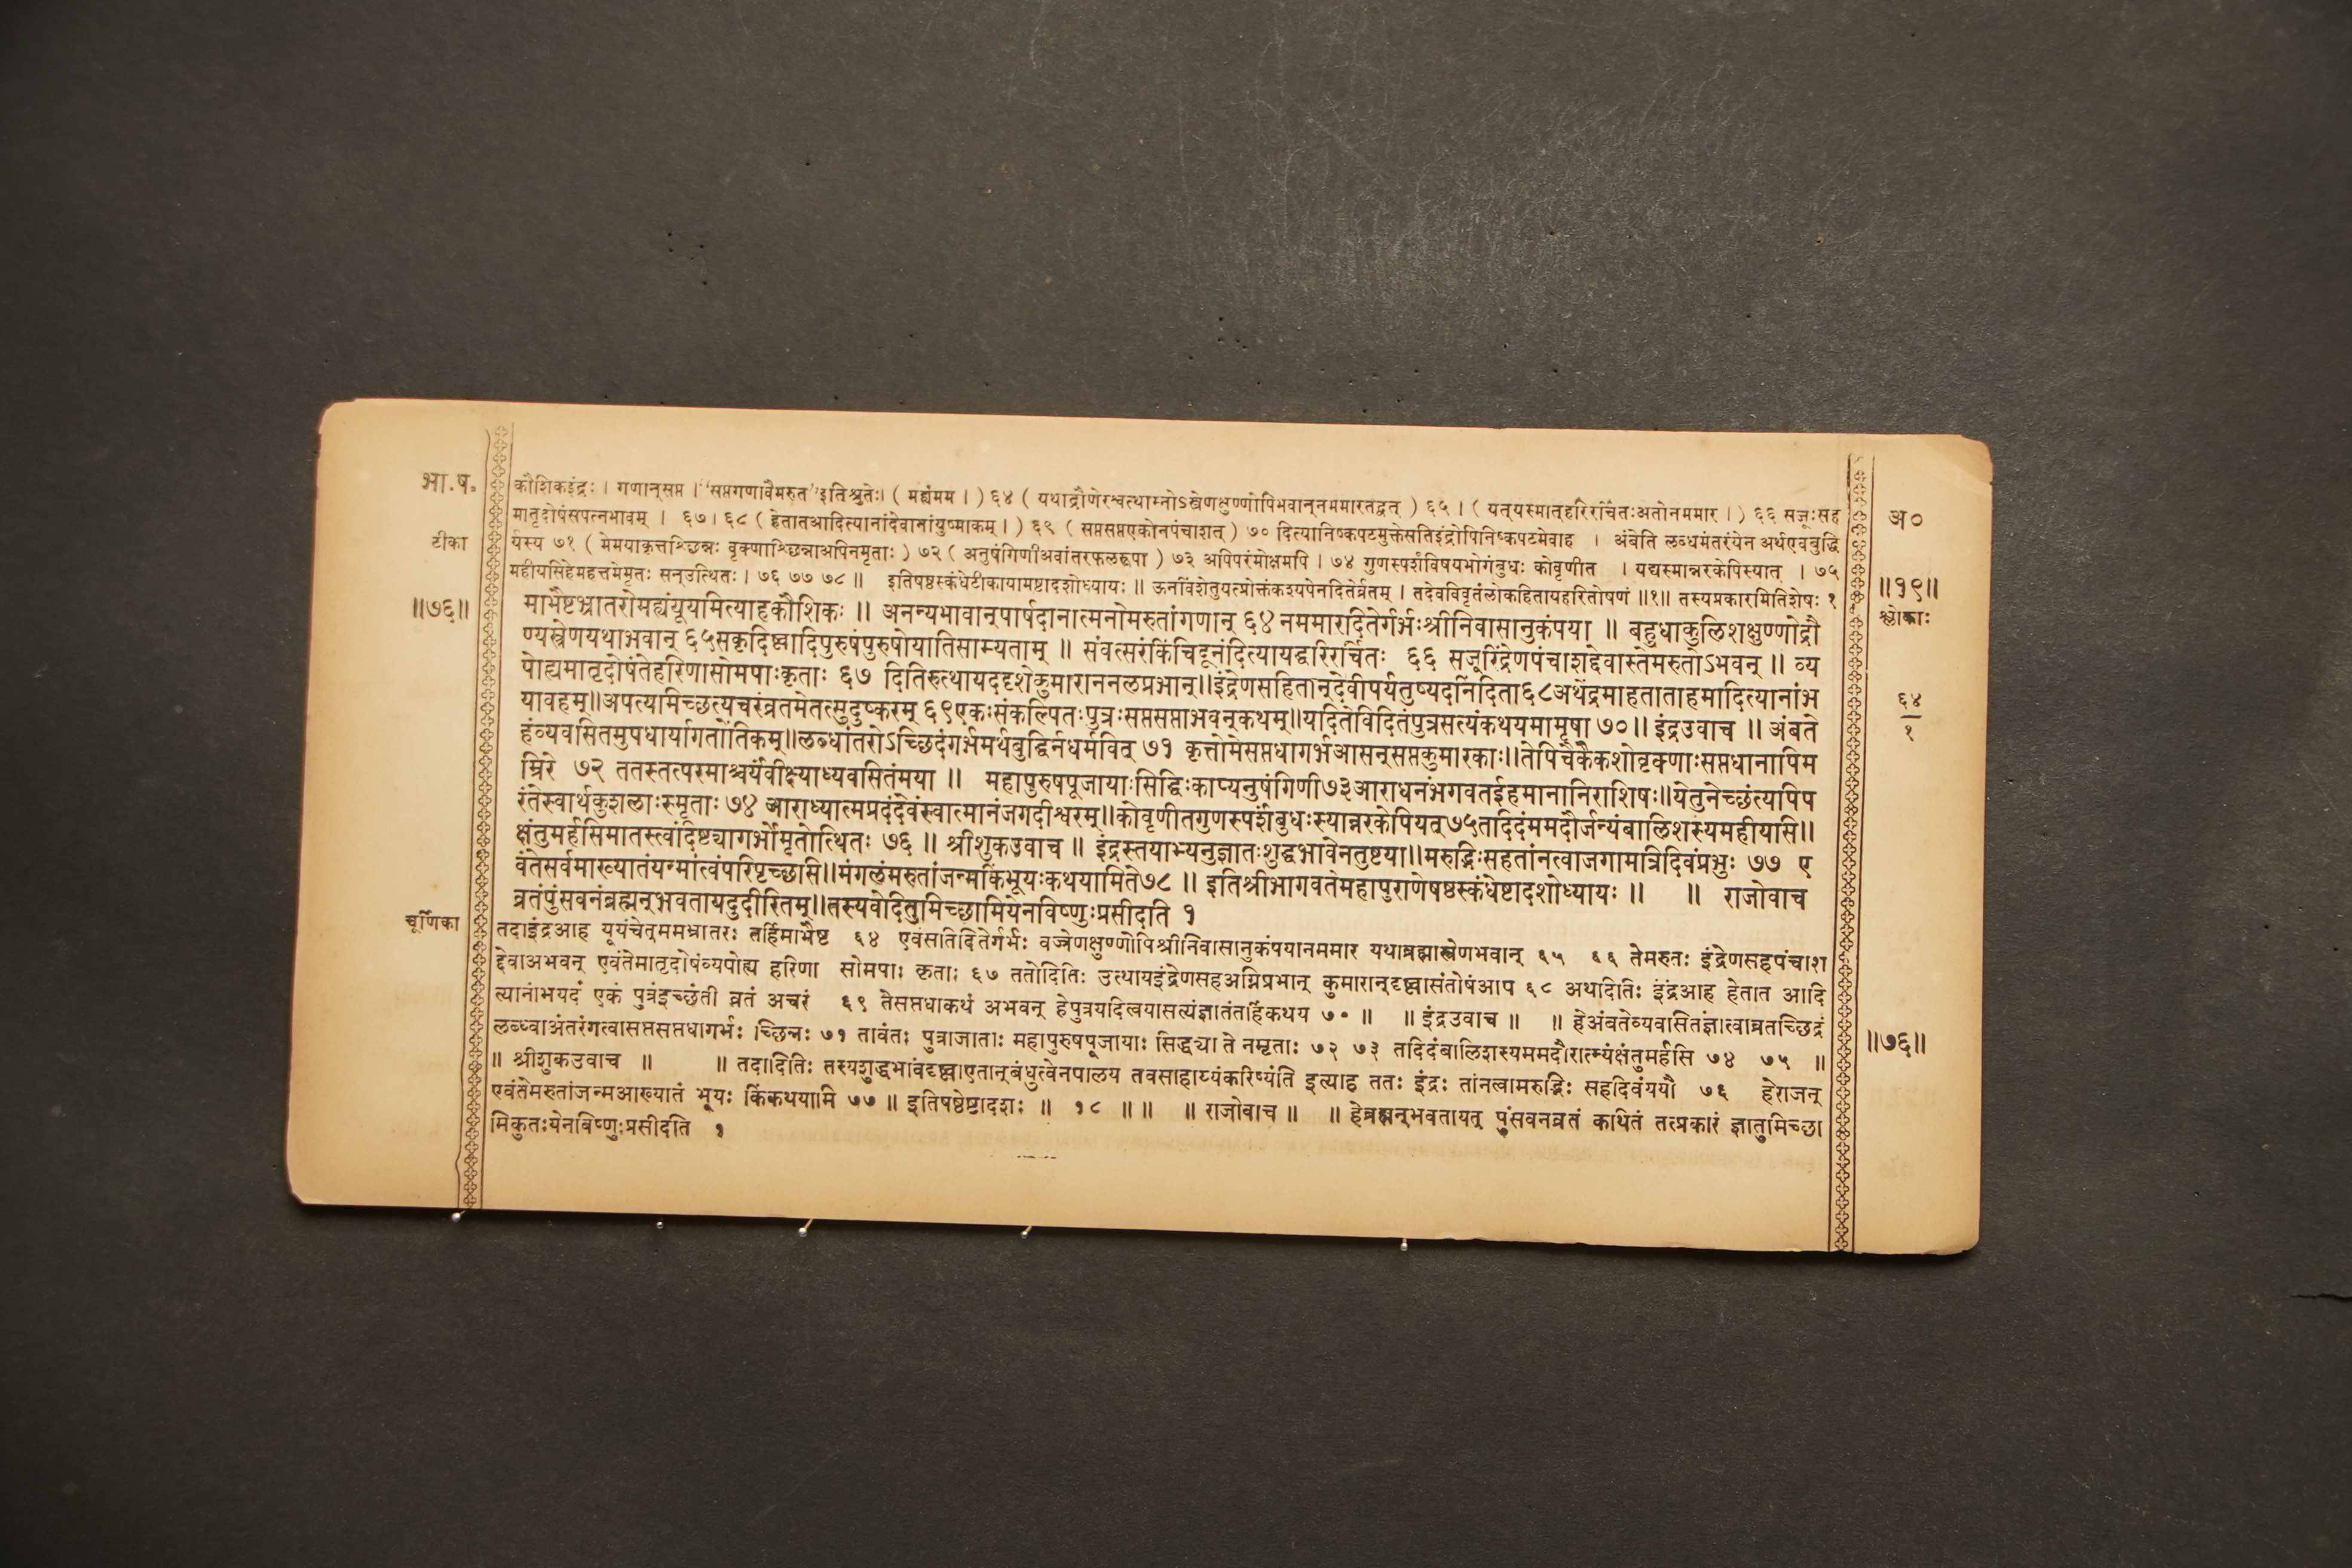 भा.ष.
कौशिकइंद्रः । गणान्सप्त । "सप्तगणावैमरुत"इतिश्रुतेः। ( मह्यंमम । ) ६४ ( यथाद्रौणेरश्वत्थाम्नोऽस्त्रेणक्षुण्णोपिभवान्नममारतद्वत् ) ६५ । ( यत्यस्मात्हरिरर्चितःअतोनममार । ) ६६ सजूःसह
मातृदोषंसपत्नभावम् । ६७ । ६८ ( हेतातआदित्यानांदेवानांयुष्माकम् । ) ६९ ( सप्तसप्तएकोनपंचाशत् ) ७० दित्यानिष्कपटमुक्तेसतिइंद्रोपिनिष्कपटमेवाह । अंबेति लब्धमंतरंयेन अर्थएवबुद्धि
टीका
र्यस्य ७१ ( मेमयाकृत्तश्छिन्नः वृक्णाश्छिन्नाअपिनमृताः ) ७२ ( अनुषंगिणीअवांतरफलरूपा ) ७३ अपिपरंमोक्षमपि । ७४ गुणस्पर्शंविषयभोगंबुधः कोवृणीत । यद्यस्मान्नरकेपिस्यात् । ७५
महीयसिहेमहत्तमेमृतः सन्उत्थितः । ७६ ७७ ७८ ॥ इतिषष्ठस्कंधेटीकायामष्टादशोध्यायः ॥ ऊनविंशेतुयत्प्रोक्तंकश्यपेनदितेर्व्रतम् । तदेवविवृतंलोकहितायहरितोषणं ॥१॥ तस्यप्रकारमितिशेषः १
अ०
॥१९॥
श्लोकाः
६४
१
॥७६॥
माभैष्टभ्रातरोमह्यंयूयमित्याहकौशिकः ॥ अनन्यभावान्पार्षदानात्मनोमरुतांगणान् ६४ नममारदितेर्गर्भःश्रीनिवासानुकंपया ॥ बहुधाकुलिशक्षुण्णोद्रौ
ण्यस्त्रेणयथाभवान् ६५सकृदिष्ट्वादिपुरुषंपुरुषोयातिसाम्यताम् ॥ संवत्सरंकिंचिदूनंदित्यायद्धरिरर्चितः ६६ सजूरिंद्रेणपंचाशद्देवास्तेमरुतोऽभवन् ॥ व्य
पोह्यमातृदोषंतेहरिणासोमपाःकृताः ६७ दितिरुत्थायददृशेकुमाराननलप्रभान्॥इंद्रेणसहितान्देवीपर्यतुष्यदनिंदिता६८अथेंद्रमाहताताहमादित्यानांभ
यावहम्॥अपत्यमिच्छत्यचरंव्रतमेतत्सुदुष्करम् ६९एकःसंकल्पितःपुत्रःसप्तसप्ताभवन्कथम्॥यदितेविदितंपुत्रसत्यंकथयमामृषा ७०॥ इंद्रउवाच ॥ अंबते
हंव्यवसितमुपधार्यागतोंतिकम्॥लब्धांतरोऽच्छिदंगर्भमर्थबुद्धिर्नधर्मवित् ७१ कृत्तोमेसप्तधागर्भआसन्सप्तकुमारकाः॥तेपिचैकैकशोवृक्णाःसप्तधानापिम
म्रिरे ७२ ततस्तत्परमाश्चर्यंवीक्ष्याध्यवसितंमया ॥ महापुरुषपूजायाःसिद्धिःकाप्यनुषंगिणी७३आराधनंभगवतईहमानानिराशिषः॥येतुनेच्छंत्यपिप
रंतेस्वार्थकुशलाःस्मृताः ७४ आराध्यात्मप्रदंदेवंस्वात्मानंजगदीश्वरम्॥कोवृणीतगुणस्पर्शंबुधःस्यान्नरकेपियत्७५तदिदंममदौर्जन्यंबालिशस्यमहीयसि॥
क्षंतुमर्हसिमातस्त्वंदिष्ट्यागर्भोमृतोत्थितः ७६ ॥ श्रीशुकउवाच ॥ इंद्रस्तयाभ्यनुज्ञातःशुद्धभावेनतुष्टया॥मरुद्भिःसहतांनत्वाजगामत्रिदिवंप्रभुः ७७ ए
वंतेसर्वमाख्यातंयन्मांत्वंपरिपृच्छसि॥मंगलंमरुतांजन्मकिंभूयःकथयामिते७८ ॥ इतिश्रीभागवतेमहापुराणेषष्ठस्कंधेष्टादशोध्यायः ॥ ॥ राजोवाच
व्रतंपुंसवनंब्रह्मन्भवतायदुदीरितम्॥तस्यवेदितुमिच्छामियेनविष्णुःप्रसीदति १
चूर्णिका
तदाइंद्रआह यूयंचेत्ममभ्रातरः तर्हिमाभैष्ट ६४ एवंसतिदितेर्गर्भः वज्रेणक्षुण्णोपिश्रीनिवासानुकंपयानममार यथाब्रह्मास्त्रेणभवान् ६५ ६६ तेमरुतः इंद्रेणसहपंचाश
द्देवाअभवन् एवंतेमातृदोषंव्यपोह्य हरिणा सोमपाः कृताः ६७ ततोदितिः उत्थायइंद्रेणसहअग्निप्रभान् कुमारान्दृष्ट्वासंतोषंआप ६८ अथदितिः इंद्रंआह हेतात आदि
त्यानांभयदं एकं पुत्रंइच्छंती व्रतं अचरं ६९ तेसप्तधाकथं अभवन् हेपुत्रयदित्वयासत्यंज्ञातंतर्हिकथय ७० ॥ ॥ इंद्रउवाच ॥ ॥ हेअंबतेव्यवसितंज्ञात्वाव्रतच्छिद्रं
लब्ध्वाअंतरंगत्वासप्तसप्तधागर्भः च्छिन्नः ७१ तावंतः पुत्राजाताः महापुरुषपूजायाः सिद्ध्या ते नमृताः ७२ ७३ तदिदंबालिशस्यममदौरात्म्यंक्षंतुमर्हसि ७४ ७५ ॥
॥ श्रीशुकउवाच ॥ ॥ तदादितिः तस्यशुद्धभावंदृष्ट्वाएतान्बंधुत्वेनपालय तवसाहाय्यंकरिष्यंति इत्याह ततः इंद्रः तांनत्वामरुद्भिः सहदिवंययौ ७६ हेराजन्
एवंतेमरुतांजन्मआख्यातं भूयः किंकथयामि ७७ ॥ इतिषष्ठेष्टादशः ॥ १८ ॥ ॥ ॥ राजोवाच ॥ ॥ हेब्रह्मन्भवतायत् पुंसवनव्रतं कथितं तत्प्रकारं ज्ञातुमिच्छा
मिकुतःयेनविष्णुःप्रसीदति १
॥७६॥